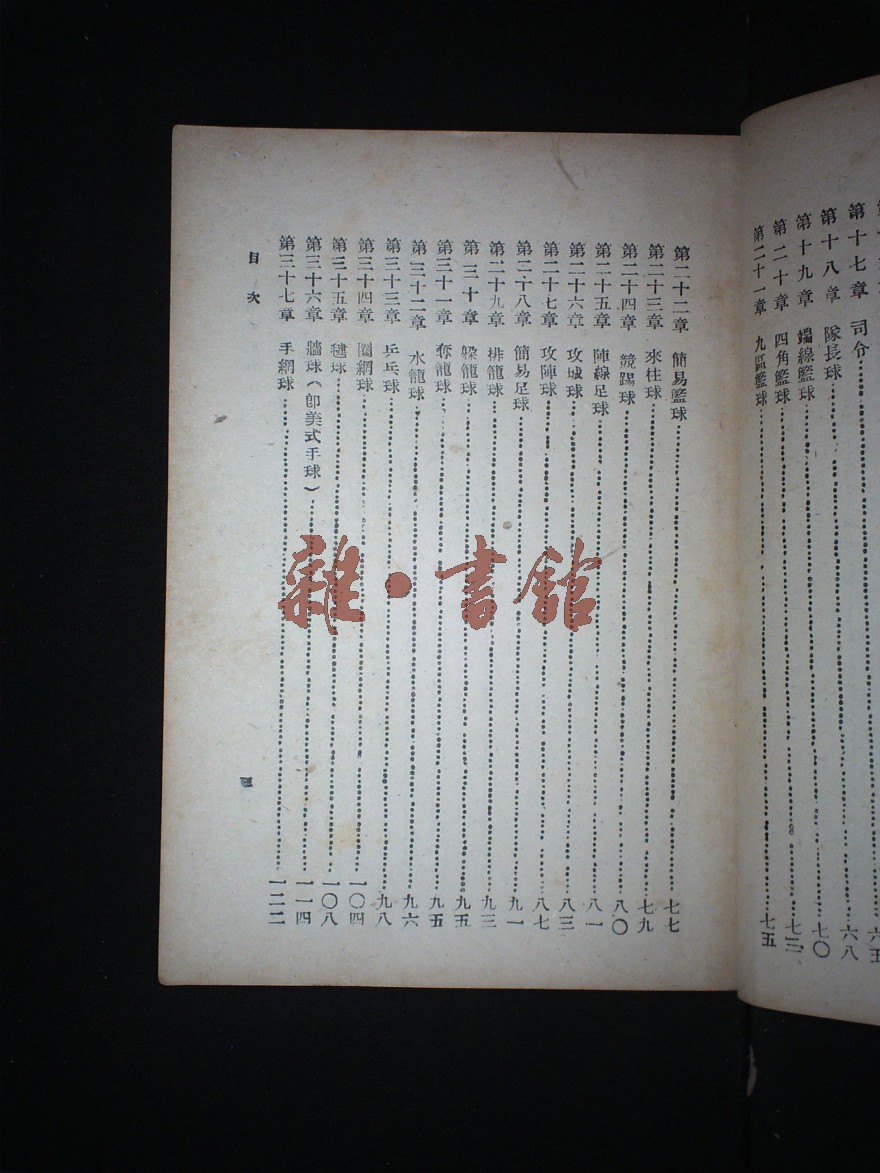 第十七章 司令
第十八章 隊長球……六八
第十九章 端線籃球……七〇
第二十章 四角籃球……七三
第二十一章 九區籃球……七五
第二十二章 簡易籃球……七七
第二十三章 來往球……七九
第二十四章 競踢球……八〇
第二十五章 陣線足球……八一
第二十六章 攻城球……八三
第二十七章 攻陣球……八七
第二十八章 簡易足球……九一
第二十九章 排龍球……九三
第三十章 躲龍球……九五
第三十一章 奪龍球……九五
第三十二章 水龍球……九六
第三十三章 乒乓球……九八
第三十四章 圍網球……一〇四
第三十五章 毽球……一〇八
第三十六章 牆球(卽美式手球)……一一四
第三十七章 手網球……一二二
目次
三
雜·書館